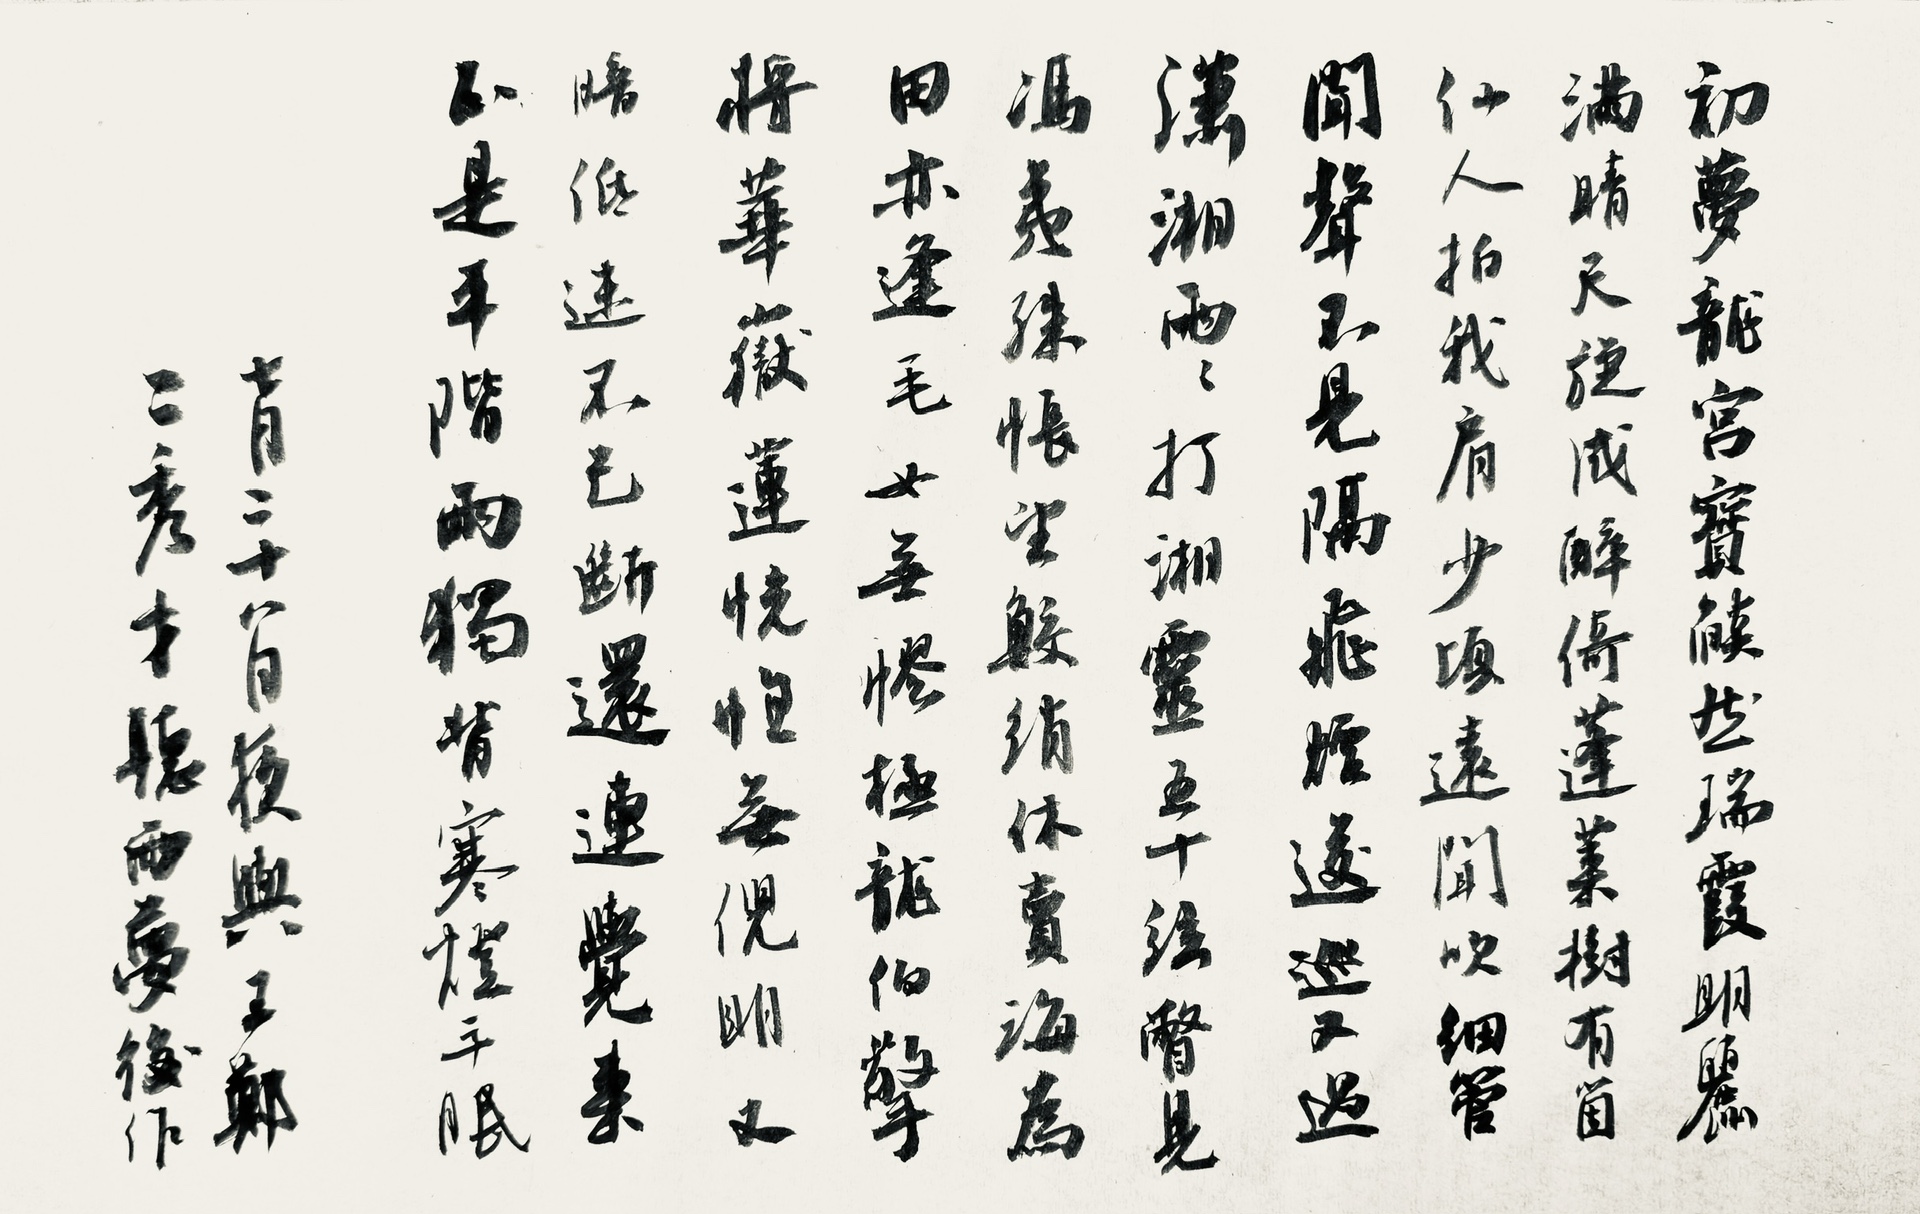 初夢龍宮寶燄然瑞霞明麗
滿晴天旋成醉倚蓬萊樹有箇
仙人拍我肩少頃遠聞吹細管
聞聲不見隔飛煙逡巡又過
瀟湘雨〻打湘靈五十絃瞥見
馮夷殊悵望鮫綃休賣海為
田亦逢毛女無憀極龍伯擎
將華嶽蓮恍無倪明又
暗低迷不已斷還連覺來
正是平階雨獨背寒燈手眠
七月二十八日夜與王鄭
二秀才聽雨夢後作